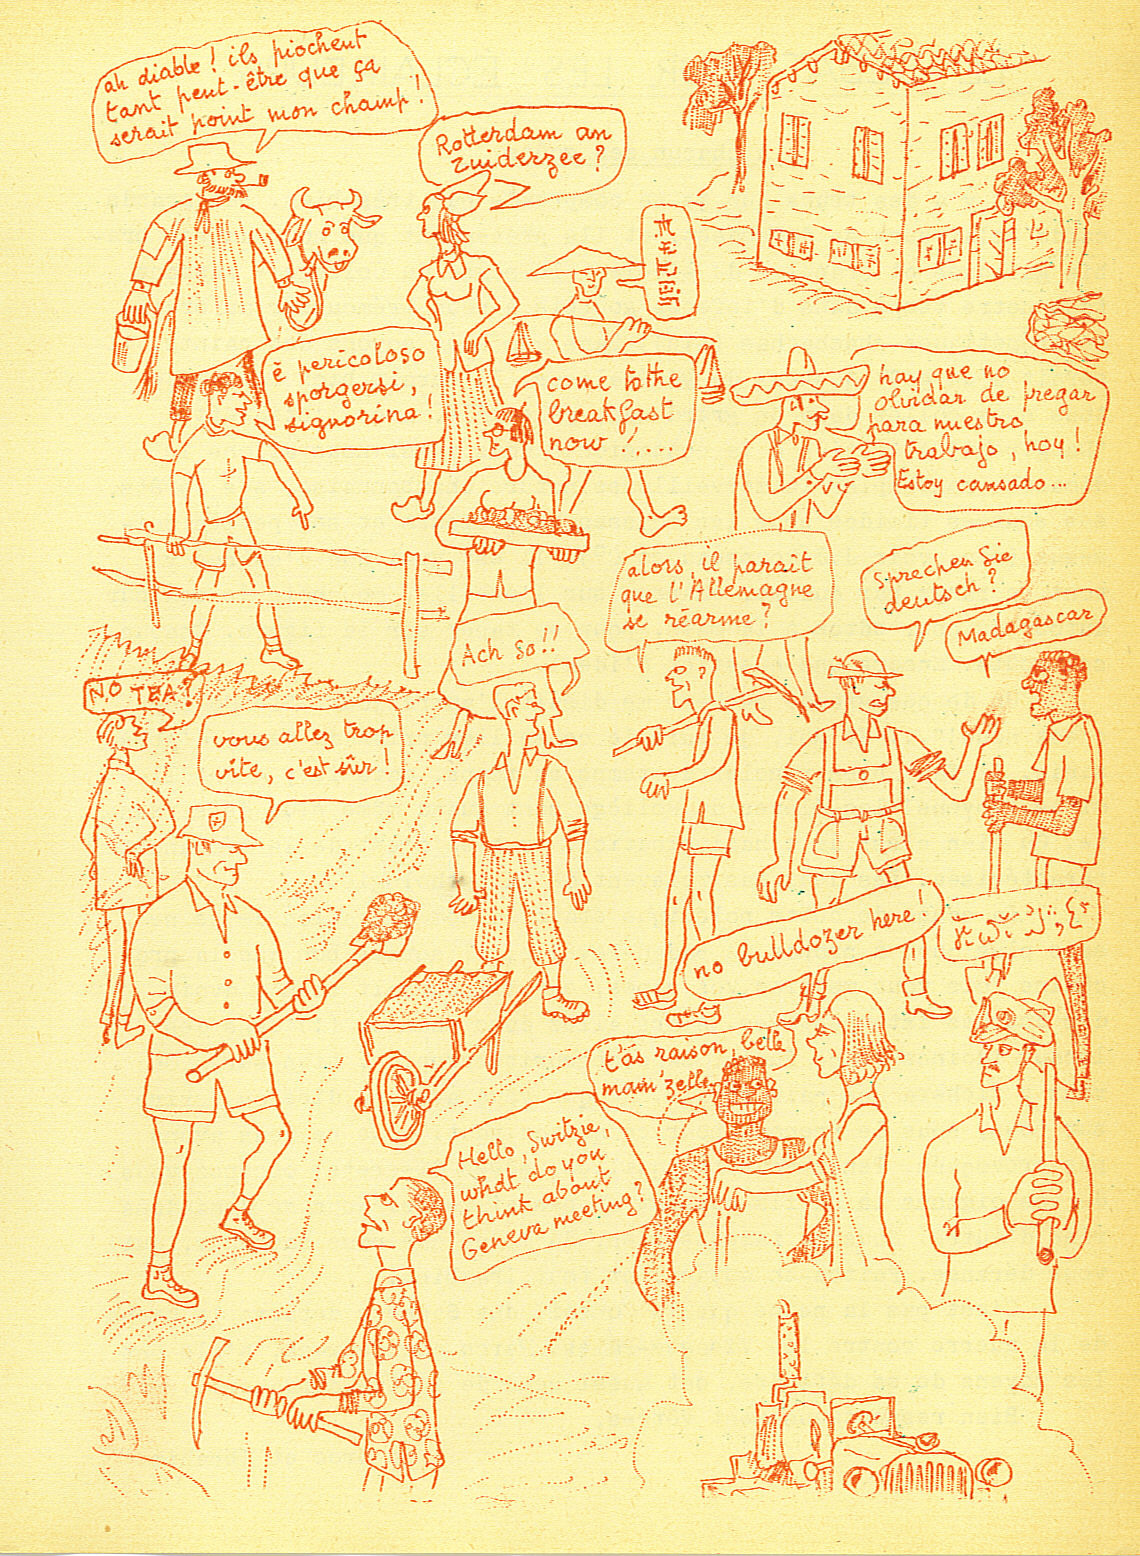 ah diable ! ils piochent
tant peut-être que ça
serait point mon champ !
Rotterdam an
Zuiderzee ?
è pericoloso
sporgersi,
signorina !
come to the
breakfast
now !....
hay que no
olvidar de pregar
para nuestro
trabajo, hoy !
Estoy cansado...
alors, il paraît
que l'Allemagne
se réarme ?
Sprechen Sie
deutsch ?
Madagascar
Ach so !!
NO TEA ?
vous allez trop
vite, c'est sûr !
no bulldozer here !
t'as raison, belle
mam'zelle
Hello, Switzie,
what do you
think about
Geneva meeting ?